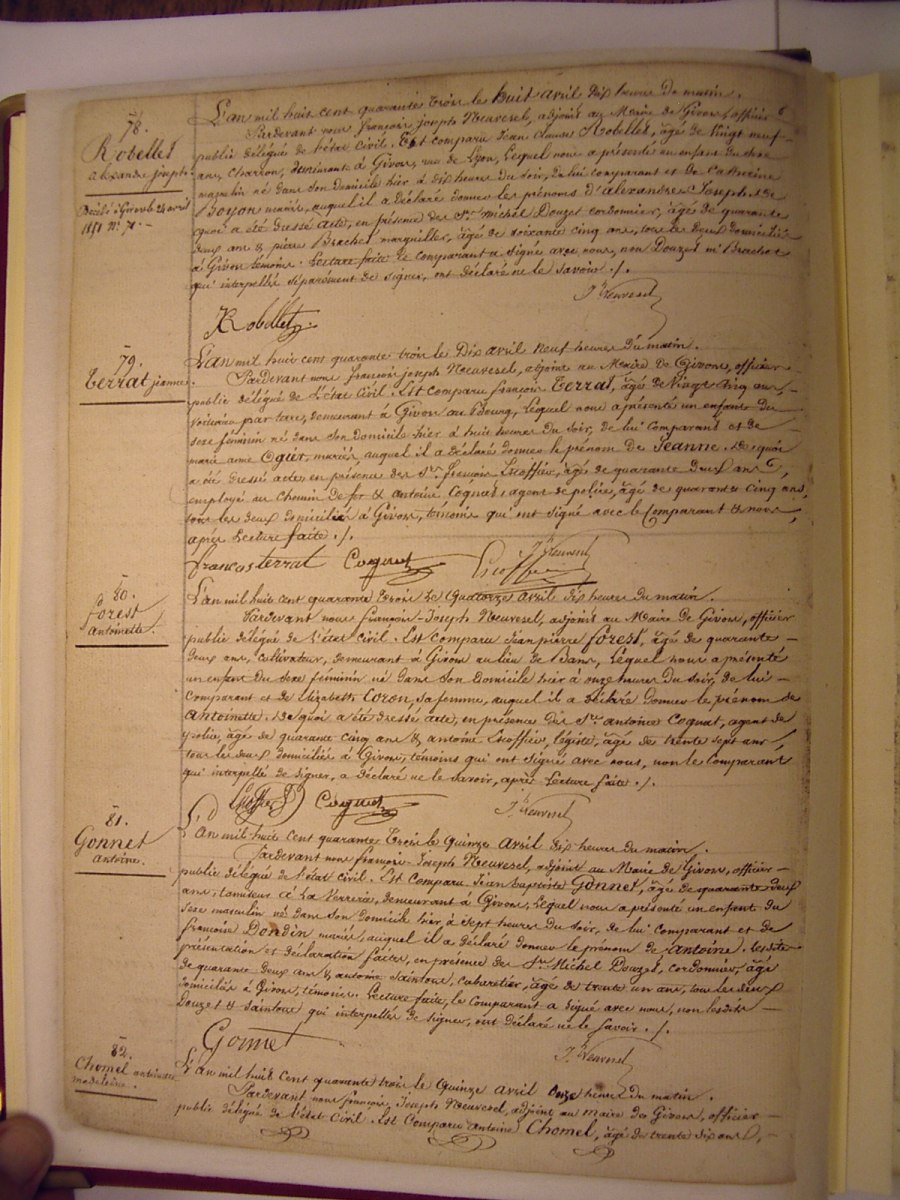 78.
Robellet
alexandre joseph.
Décédé à Givors le 24 avril
1851 N° 71.
L'an mil huit cent quarante trois le huit avril dix heures du matin.
Pardevant nous françois joseph Neuvesel, adjoint au Maire de Givors, officier
public délégué de l'état Civil. Est comparu Jean Claude Robellet, âgé de vingt neuf
ans, charron, demeurant à Givors, rue de Lyon, Lequel nous a présenté un enfant du sexe
masculin né dans son domicile hier à dix heures du soir, de lui comparant et de Catherine
Boyon mariés, auquel il a déclaré donner les prénoms d'alexandre Joseph. De
quoi a été dressé acte, en présence des Srs. michel Douzet cordonnier, âgé de quarante
deux ans & pierre Brachet marguiller, âgé de soixante cinq ans, tous les deux domiciliés
à Givors témoins. Lecture faite le comparant a signé avec nous, non Douzet ni Brachet
qui interpellés séparément de signer, ont déclaré ne le savoir ./.
Jh Neuvesel
Robellet
79.
Terrat jeanne.
L'an mil huit cent quarante trois le Dix avril neuf heures du matin.
Pardevant nous françois joseph Neuvesel, adjoint au Maire de Givors, officier
public délégué de l'état Civil. Est comparu françois Terrat, âgé de vingt cinq ans,
voiturier par terre, demeurant à Givors au Bourg, Lequel nous a présenté un enfant du
sexe féminin né dans son domicile hier à huit heures du soir, de lui comparant et de
marie anne Ogier, mariés, auquel il a déclaré donner le prénom de Jeanne. De quoi
a été dressé acte, en présence des Srs. françois Escoffier, âgé de quarante deux ans,
employé au chemin de fer & antoine Cognat, agent de police, âgé de quarante cinq ans,
tous les deux domiciliés à Givors, témoins qui ont signé avec le Comparant & nous,
après Lecture faite ./.
francois terrat Cognat Escoffier Jh Neuvesel
80.
forest
antoinette.
L'an mil huit cent quarante trois le Quatorze avril dix heures du matin.
Pardevant nous françois-Joseph Neuvesel, adjoint au Maire de Givors, officier
public délégué de l'état Civil. Est comparu Jean pierre forest, âgé de quarante
deux ans, cultivateur, demeurant à Givors au lieu de Bans, Lequel nous a présenté
un enfant du sexe féminin né dans son domicile hier à onze heures du soir, de lui
comparant et de Elizabeth Coron, sa femme, auquel il a déclaré donner le prénom de
antoinette. De quoi a été dressé acte, en présence des Srs. antoine Cognat, agent de
police, âgé de quarante cinq ans & antoine Escoffier, légiste, âgé de trente sept ans,
tous les deux domiciliés à Givors, témoins qui ont signé avec nous, non le Comparant
qui interpellé de signer, a déclaré ne le savoir, après Lecture faite ./.
Escoffier Cognat Jh Neuvesel
81.
Gonnet
antoine.
L'an mil huit cent quarante trois le Quinze avril dix heures du matin.
Pardevant nous françois-Joseph Neuvesel, adjoint au Maire de Givors, officier
public délégué de l'état Civil. Est comparu Jean baptiste Gonnet, âgé de quarante deux
ans, tamiseur à La Verrerie, demeurant à Givors, Lequel nous a présenté un enfant du
sexe masculin né dans son domicile hier, à sept heures du soir, de lui comparant et de
françoise Dondin mariés, auquel il a déclaré donner le prénom de antoine. Lesdites
présentation et déclaration faites, en présence des Srs. Michel Douzet, cordonnier, âgé
de quarante deux ans & antoine Saintoux cabaretier, âgé de trente un ans, tous les deux
domiciliés à Givors, témoins. Lecture faite, le Comparant a signé avec nous, non lesdits
Douzet & Saintoux qui interpellés de signer, ont déclaré ne le savoir ./.
Gonnet Jh Neuvesel
82.
Chomel antoinette
madeleine.
L'an mil huit cent quarante trois le Quinze avril onze heures du matin.
Pardevant nous françois, Joseph Neuvesel, adjoint au maire de Givors, officier
public délégué de l'état Civil. Est Comparu Antoine Chomel, âgé de trente six ans,